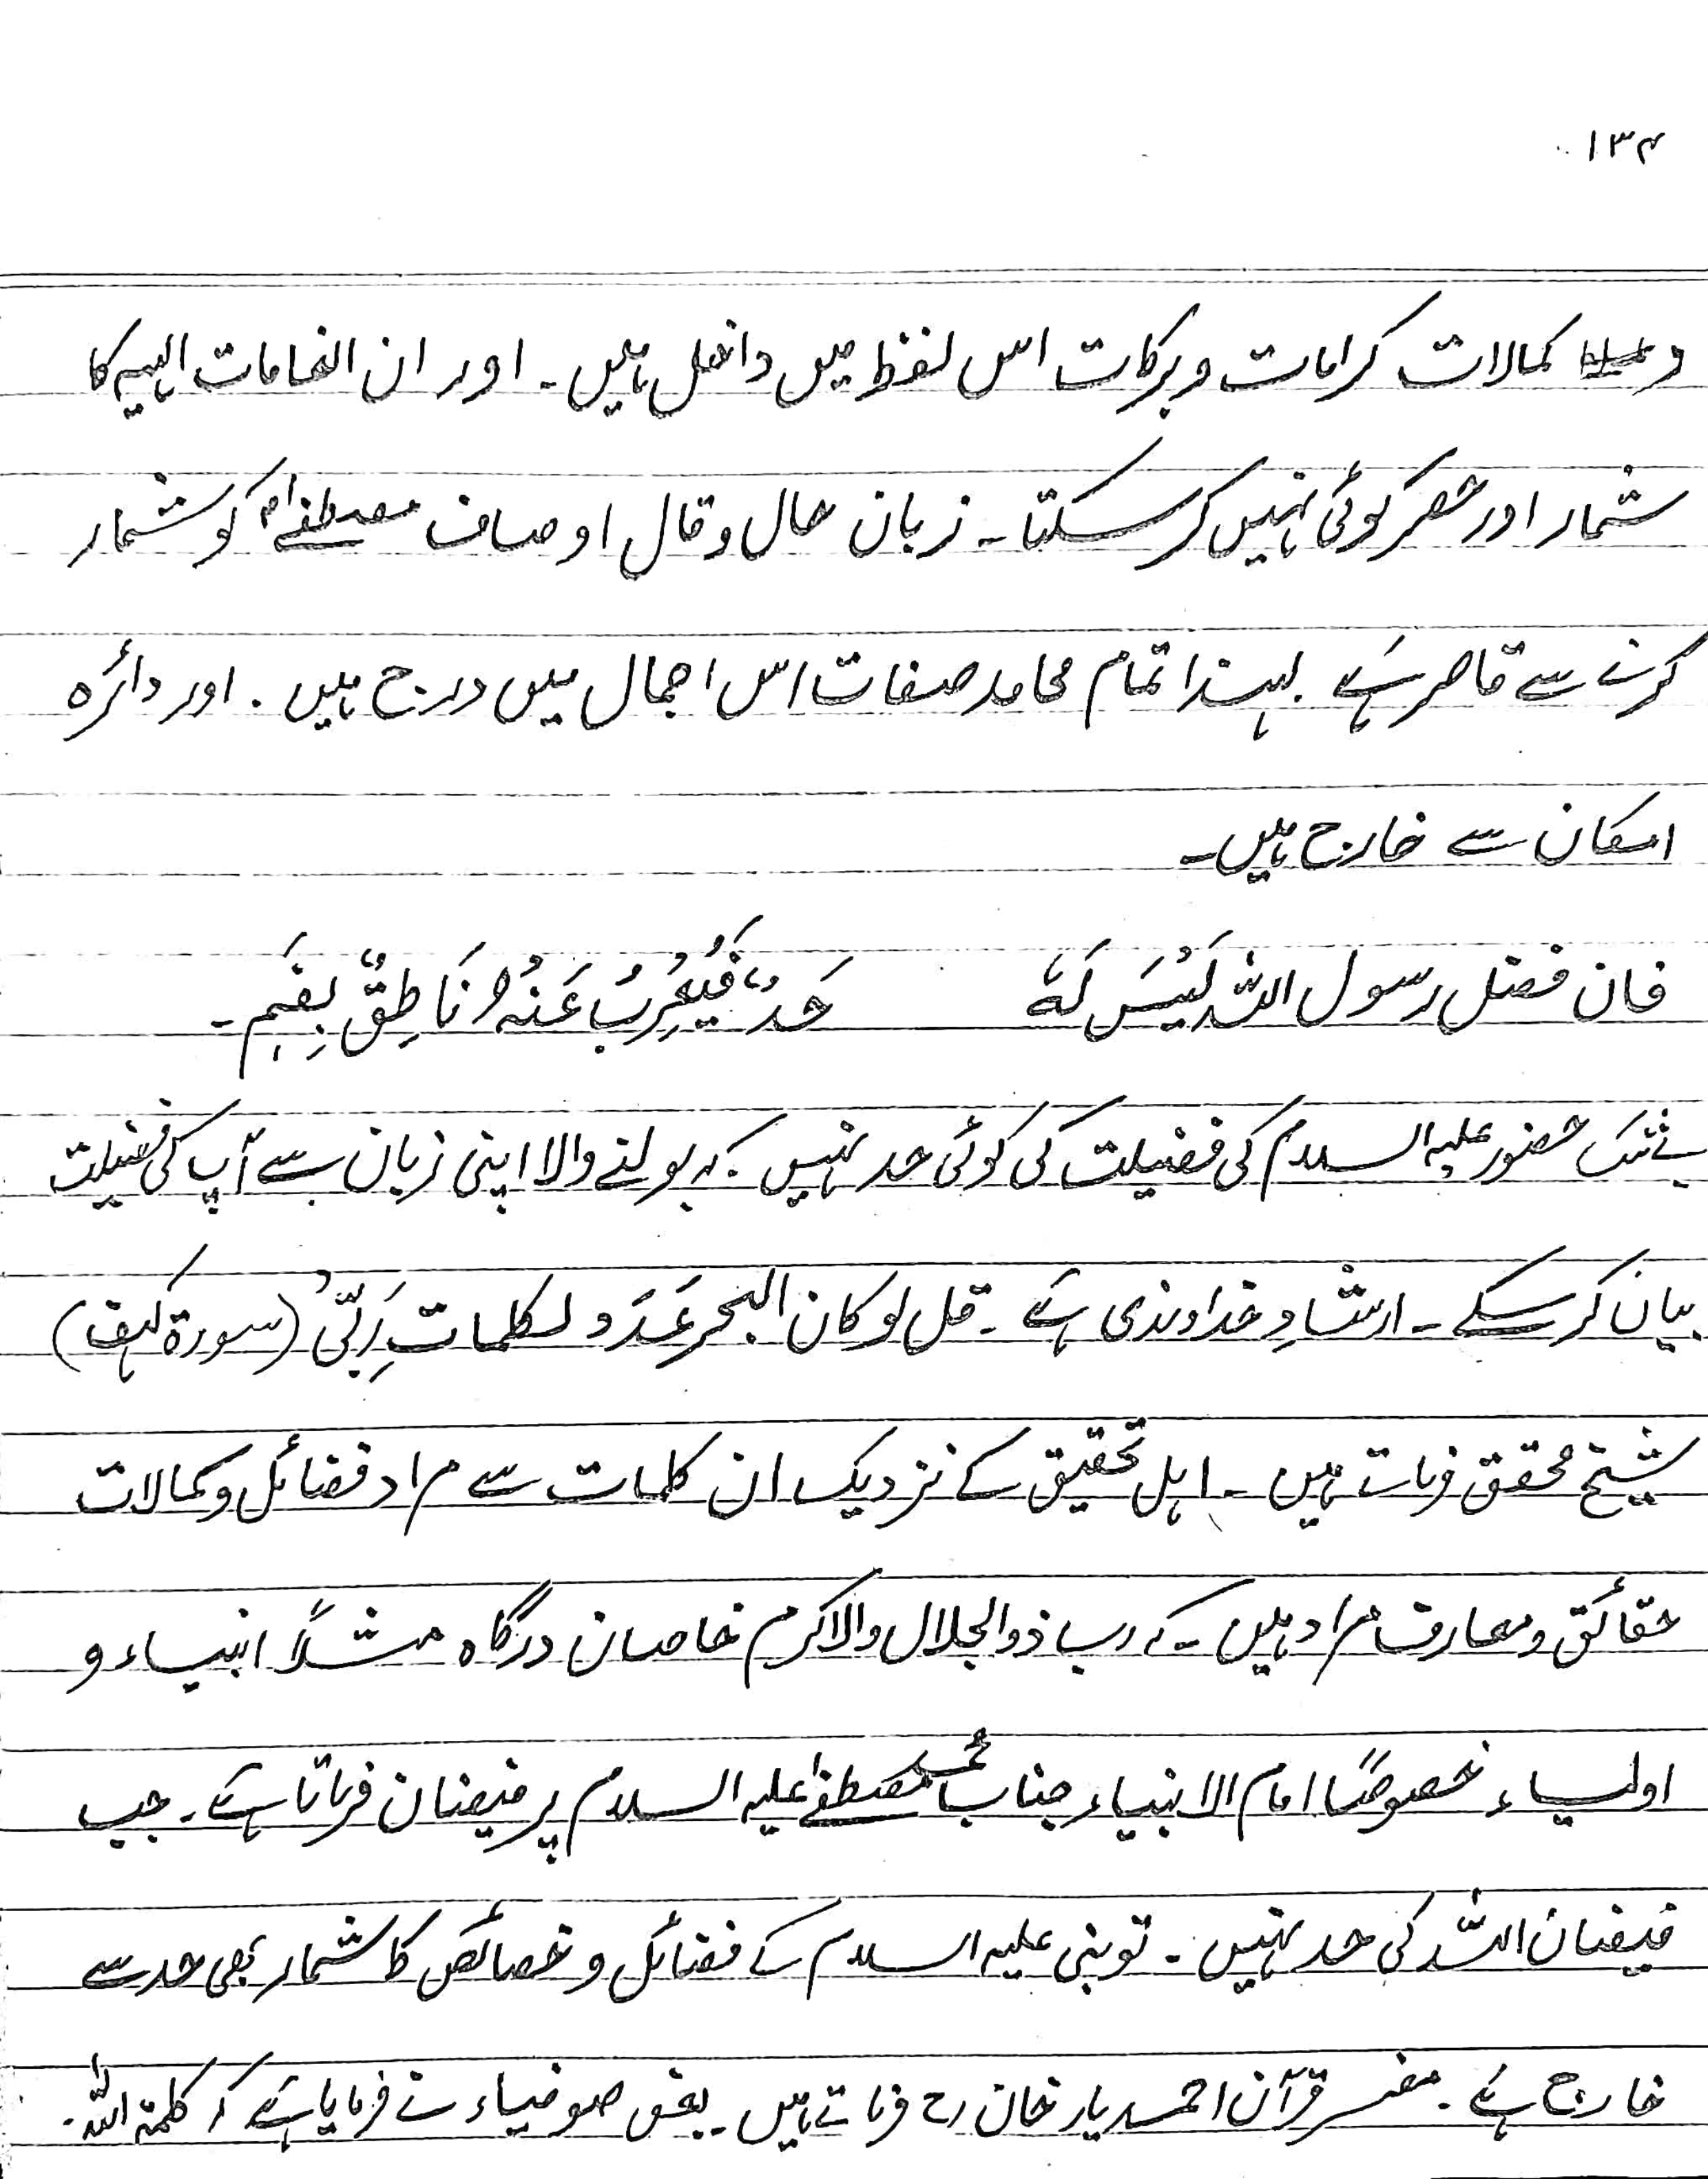 ۱۳۴
و کمالات کرامات و برکات اس لفظ میں داخل ہیں۔ اور ان انعامات الہیہ کا
شمار اور حصر کوئی نہیں کر سکتا۔ زبان حال و قال اوصاف مصطفےٰ کو شمار
کرنے سے قاصر ہے لہذا تمام محامد صفات اس اجمال میں درج ہیں۔ اور دائرہ
امکان سے خارج ہیں۔
فان فضل رسول اللہ لَیْسَ لَهٗ حَدٌّ فَیُعْرِبُ عَنْهُ نَاطِقٌ بِفَمِ۔
بے شک حضور علیہ السلام کی فضیلت کی کوئی حد نہیں۔ کہ بولنے والا اپنی زبان سے آپ کی فضیلت
بیان کر سکے۔ ارشادِ خداوندی ہے۔ قل لو کان البحر عَدَد لکلمات رَبّی (سورۃ کہف)
شیخ محقق فرماتے ہیں۔ اہل تحقیق کے نزدیک ان کلمات سے مراد فضائل و کمالات
حقائق و معارف مراد ہیں۔ کہ رب ذوالجلال والاکرم خاصان درگاہ مثلاً انبیاء و
اولیاء خصوصًا امام الانبیاء جناب محمد مصطفےٰ علیہ السلام پر فیضان فرماتا ہے۔ جب
فیضان اللہ کی حد نہیں۔ تو نبی علیہ السلام کے فضائل و خصائص کا شمار بھی حد سے
خارج ہے۔ مفسر قرآن احمد یار خان رح فرماتے ہیں۔ بعض صوفیاء نے فرمایا ہے کہ کلمۃ اللہ۔